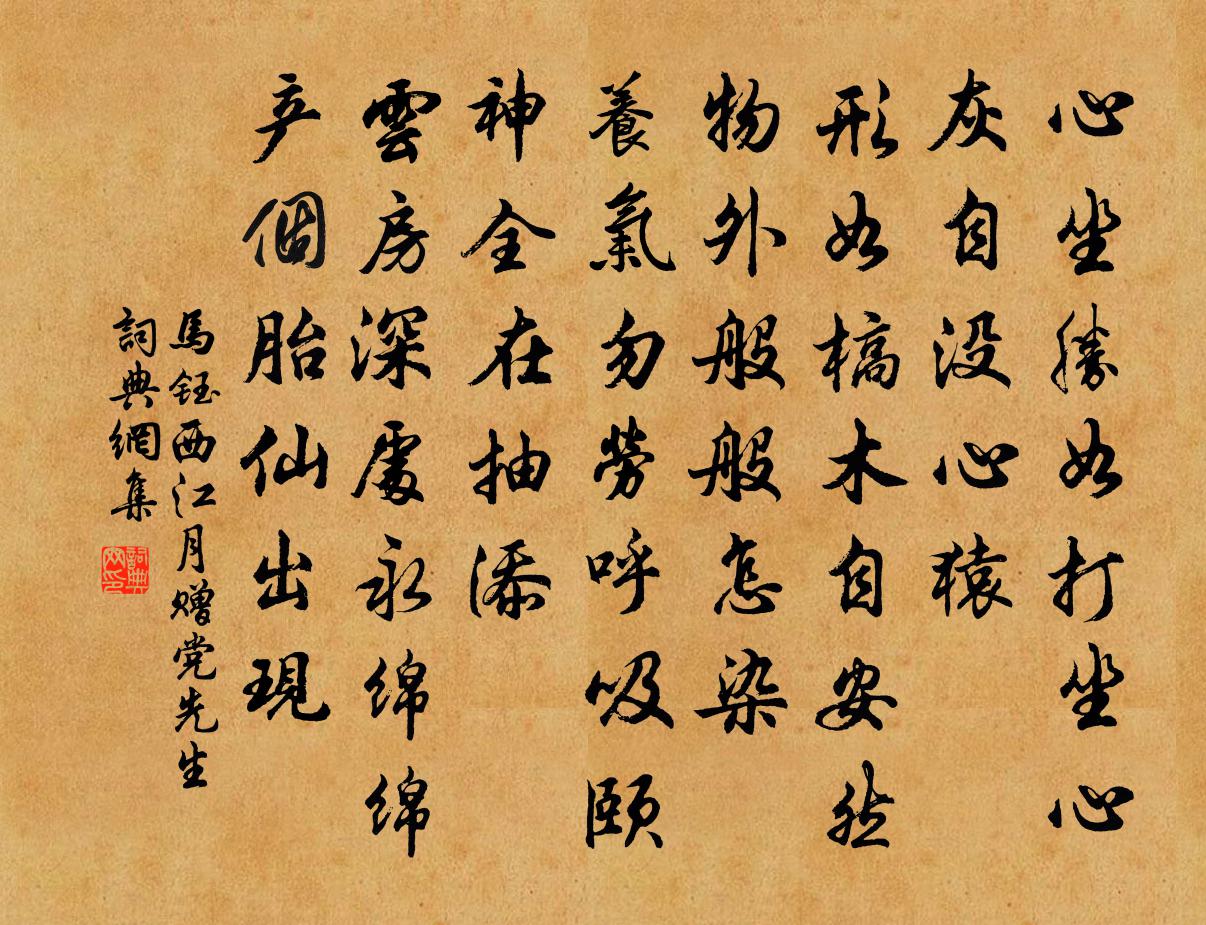 心坐勝如打坐心
灰自没心猿
形如槁木自安然
物外般般怎染
養氣勿勞呼吸頤
神全在抽添
雲房深處永綿綿
产個胎仙出現
馬鈺西江月赠党先生
詞典網集
詞典网印